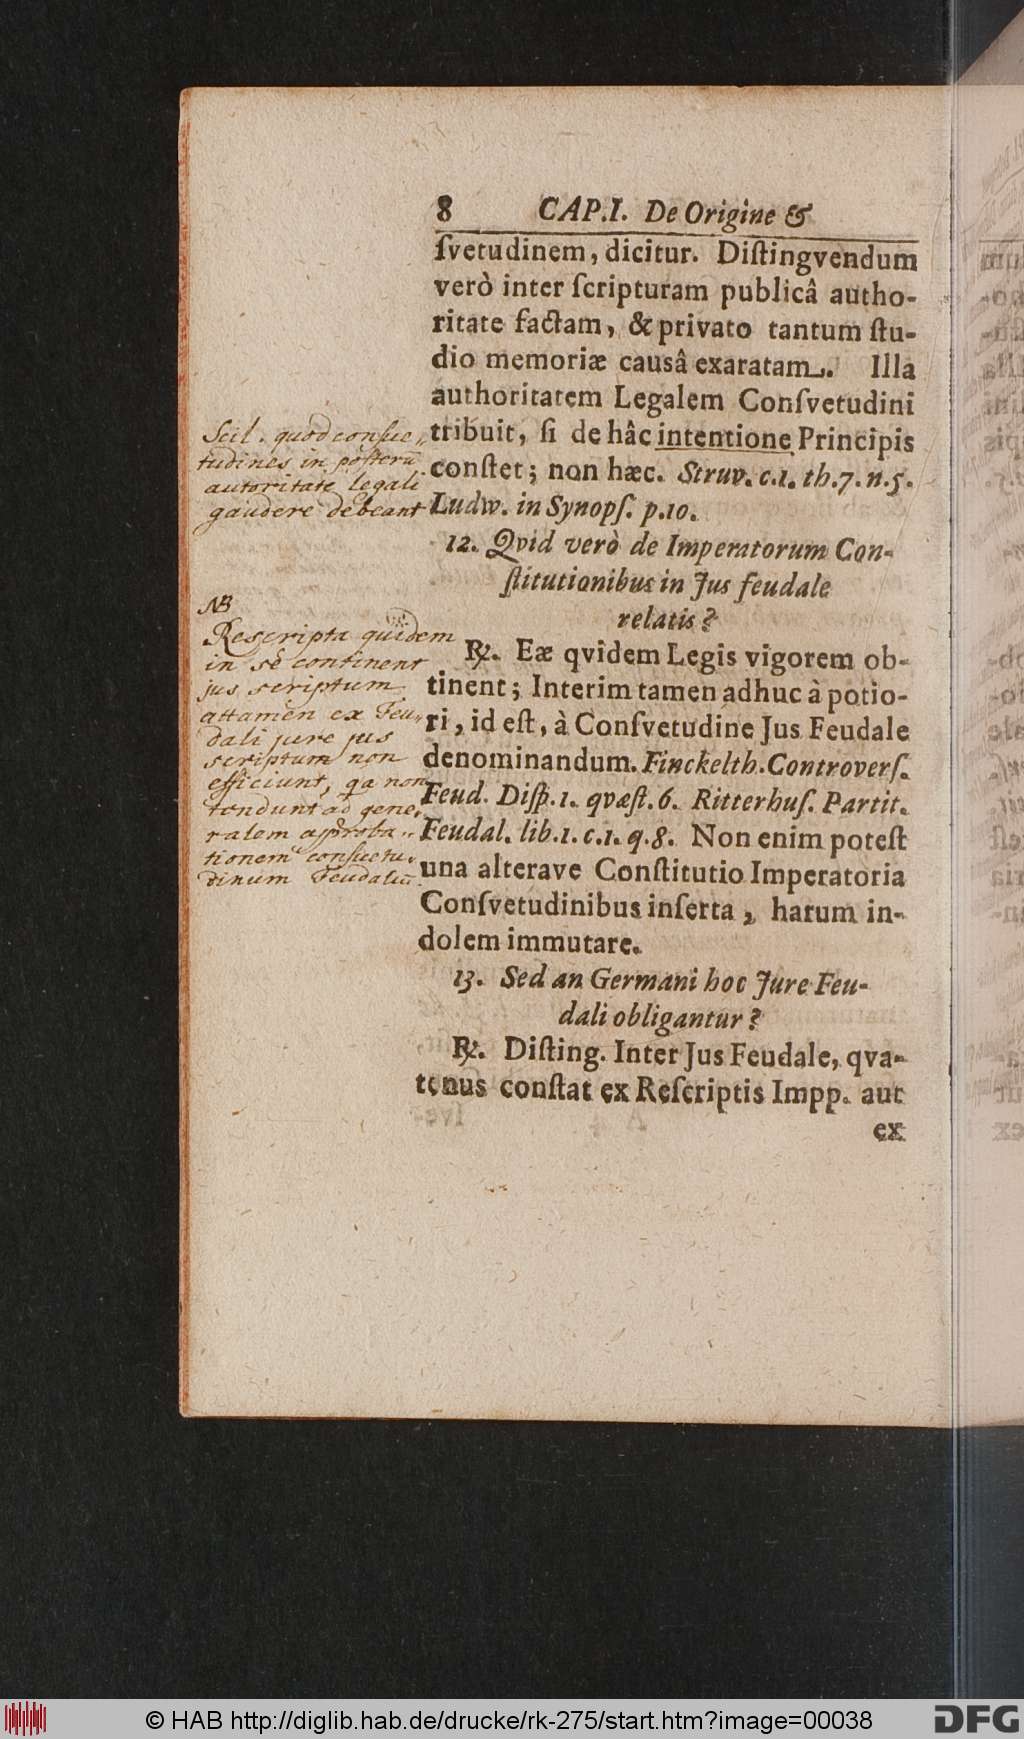 8 CAP.I. De Origine &
ſvetudinem, dicitur. Diſtingvendum
verò inter ſcripturam publicâ autho-
ritate factam, & privato tantum ſtu-
dio memoriæ causâ exaratam. Illa
authoritatem Legalem Conſvetudini
tribuit, ſi de hâc intentione Principis
conſtet; non hæc. Struv. c.1. th.7. n.5.
Ludw. in Synopſ. p.10.
12. Qvid verò de Imperatorum Con-
ſtitutionibus in Jus feudale
relatis?
℞. Eæ qvidem Legis vigorem ob-
tinent; Interim tamen adhuc à potio-
ri, id eſt, à Conſvetudine Jus Feudale
denominandum. Finckelth. Controverſ.
Feud. Diſp. 1. qvæſt. 6. Ritterhuſ. Partit.
Feudal. lib.1. c.1. q.8. Non enim poteſt
una alterave Conſtitutio Imperatoria
Conſvetudinibus inſerta, harum in-
dolem immutare.
13. Sed an Germani hoc Jure Feu-
dali obligantur?
℞. Diſting. Inter Jus Feudale, qva-
tenus conſtat ex Reſcriptis Impp. aut
ex
Scil. quod consue„
tudines in posterū
autoritate legali
gaudere debeant
NB
Rescripta quidem
in se continent
jus scriptum
attamen ex Feu„
dali jure jus
scriptum non
efficiunt, qa non
tendunt ad gene„
ralem approba„
tionem consuetu„
dinum Feudaliū.
© HAB http://diglib.hab.de/drucke/rk-275/start.htm?image=00038
DFG